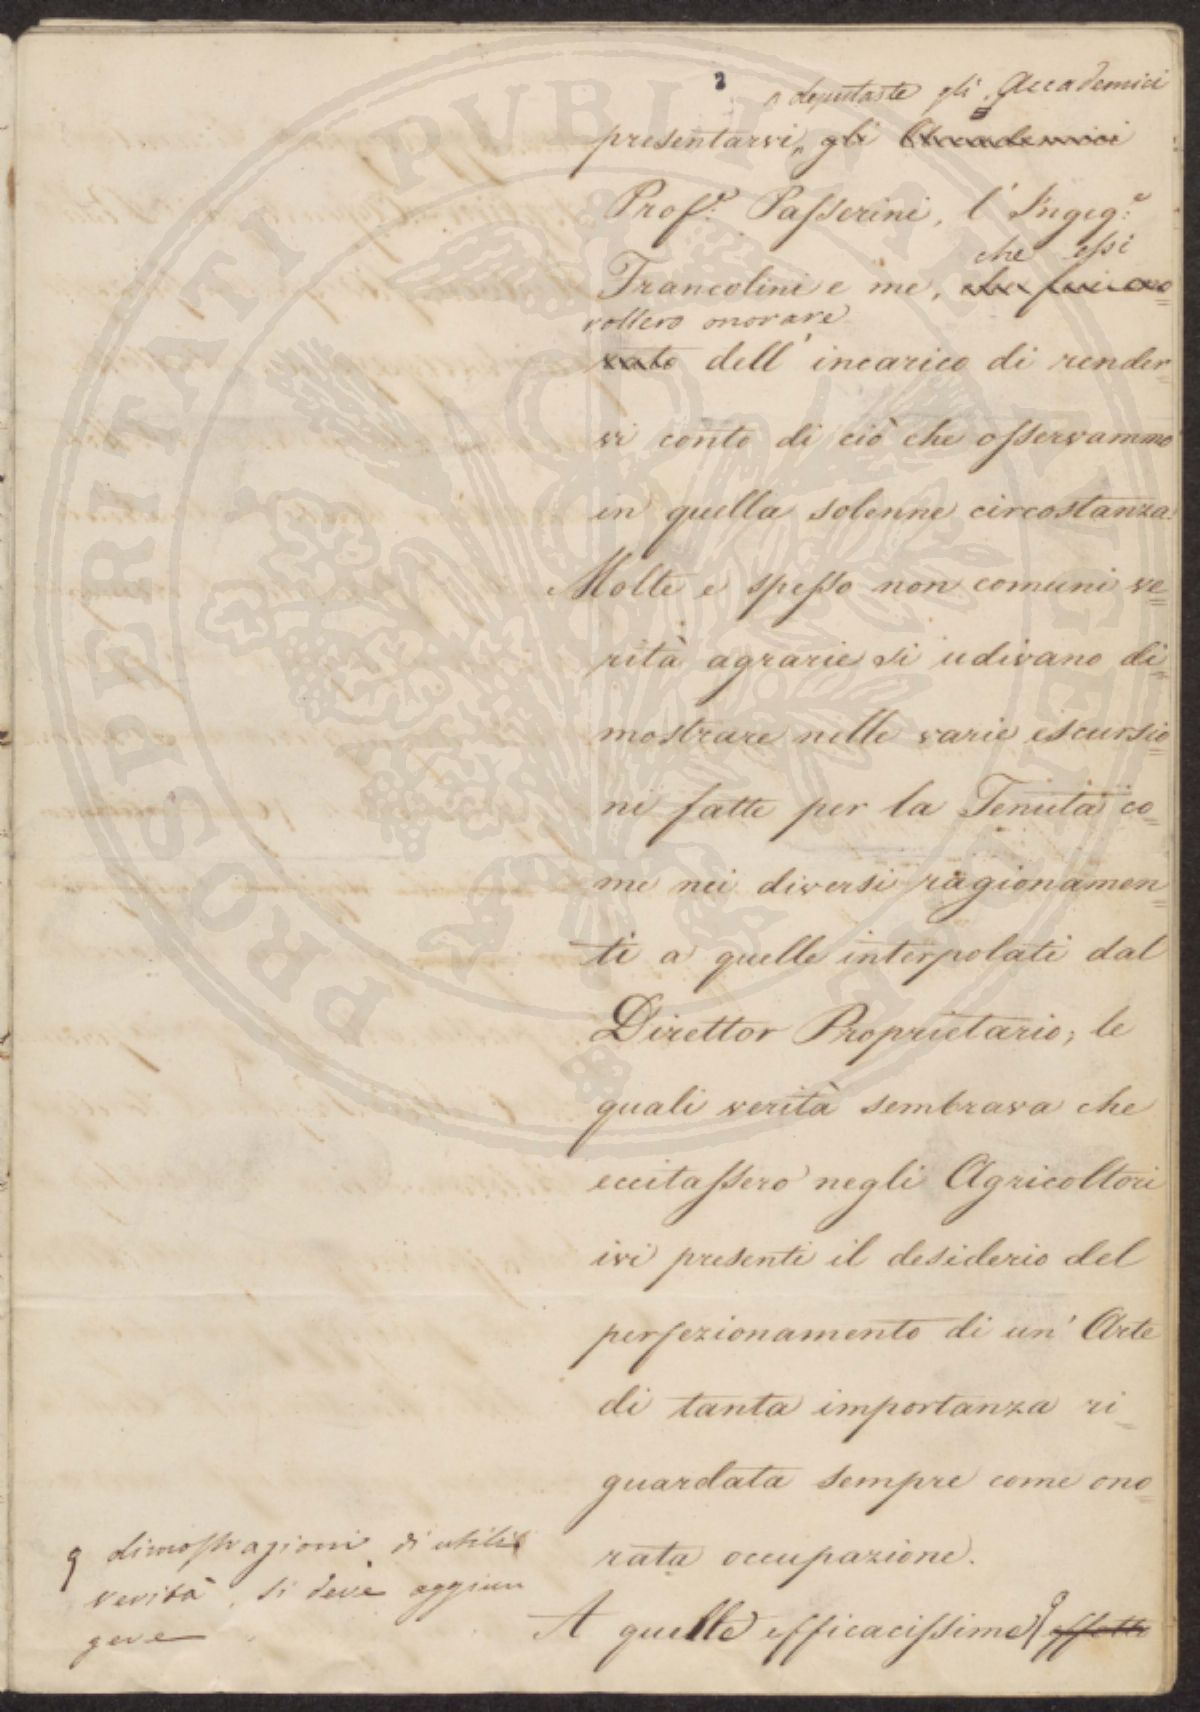 2
e deputaste gli Accademici
presentarvi, gli Accademici
Prof.e Passerini, l'Ingeg.e
che essi
Francolini e me, che fui ono
vollero onorare
rato dell'incarico di render
vi conto di ciò che osservammo
in quella solenne circostanza.
Molte e spesso non comuni ve
rità agrarie si udivano di
mostrare nelle varie escursio
ni fatte per la Tenuta co
me nei diversi ragionamen
ti a quelle interpolati dal
Direttor Proprietario; le
quali verità sembrava che
eccitassero negli Agricoltori
ivi presenti il desiderio del
perfezionamento di un' Arte
di tanta importanza ri
guardata sempre come ono
rata occupazione.
A quelle efficacissime effetto
dimostrazioni di utili
verità, si deve aggiun
gere
PROSPERITATI PUBLICAE AUGENDAE